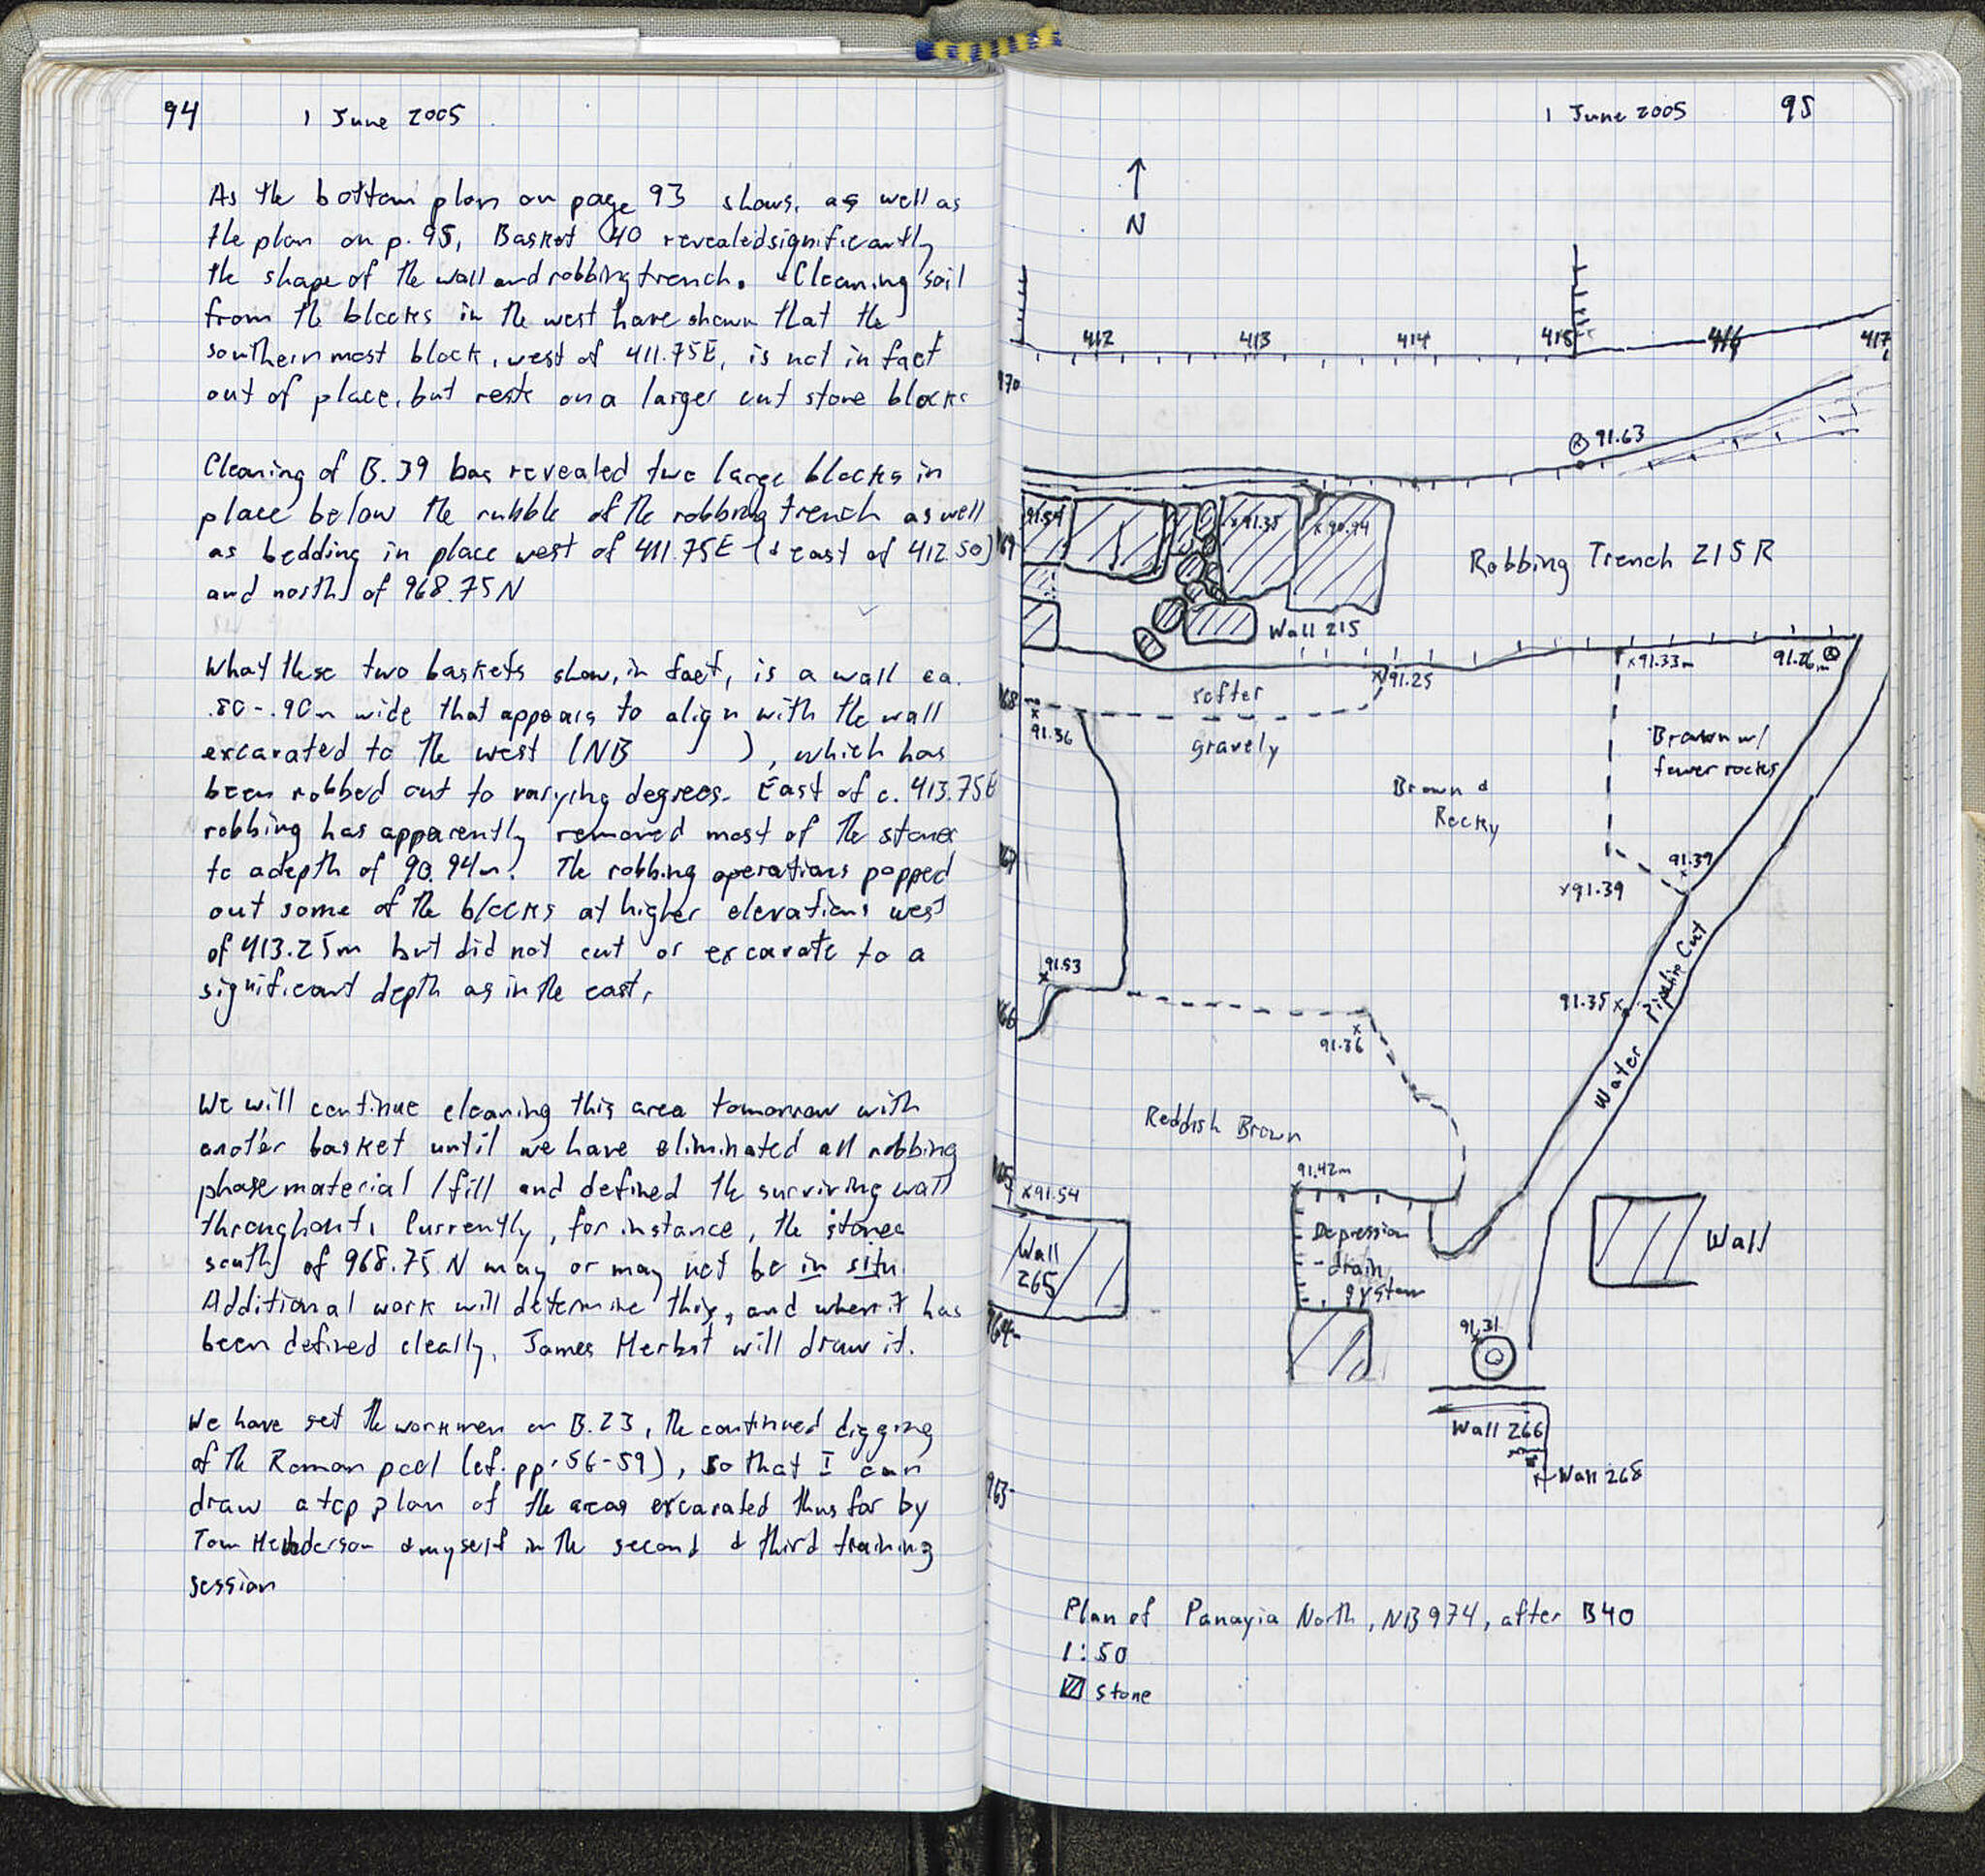 94
1 June 2005
As the bottom plan on page 93 shows, as well as
the plan on p. 95, Basket 40 revealed significantly
the shape of the wall and robbing trench. Cleaning soil
from the blocks in the west have shown that the
southernmost block, west of 411.75E, is not in fact
out of place, but rests on a larger cut stone blocks
Cleaning of B.39 has revealed two large blocks in
place below the rubble of the robbing trench as well
as bedding in place west of 411.75E (& east of 412.50)
and north of 968.75N
What these two baskets show, in fact, is a wall ca.
.80-.90m wide that appears to align with the wall
excavated to the west (NB ), which has
been robbed out to varying degrees. East of c. 413.75E
robbing has apparently removed most of the stones
to a depth of 90.94m. The robbing operations popped
out some of the blocks at higher elevations west
of 413.25m but did not cut or excavate to a
significant depth as in the east.
We will continue cleaning this area tomorrow with
another basket until we have eliminated all robbing
phase material / fill and defined the surviving wall
throughout. Currently, for instance, the stones
south of 968.75 N may or may not be in situ.
Additional work will determine this, and when it has
been defined cleally, James Herbst will draw it.
We have set the workmen on B.23, the continued digging
of the Roman pool (cf. pp. 56-59), so that I can
draw a top plan of the areas excavated thus far by
Tom Henderson & myself in the second & third training
session
1 June 2005
95
N
412 413 414 415 416 417
970
91.63
91.54
91.35
90.94
969
Robbing Trench 215R
Wall 215
91.33m
91.26m
91.25
968
softer
gravely
91.36
Brown w/
fewer rocks
Brown &
Rocky
967
91.39
91.39
91.53
91.35
966
91.36
Water Pipeline Cut
Reddish Brown
965
91.42m
91.54
Wall
265
Depression
- drain
system
Wall
964
91.31
Wall 266
Wall 268
963
Plan of Panayia North, NB 974, after B40
1:50
stone